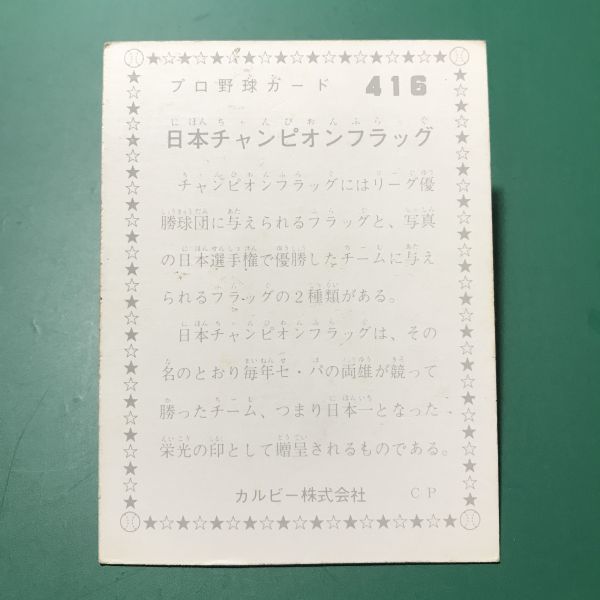 プロ野球カード 416
にほんちゃんぴおんふらっぐ
日本チャンピオンフラッグ
チャンピオンフラッグにはリーグ優
勝球団に与えられるフラッグと、写真
の日本選手権で優勝したチームに与え
られるフラッグの2種類がある。
日本チャンピオンフラッグは、その
名のとおり毎年セ・パの両雄が競って
勝ったチーム、つまり日本一となった
栄光の印として贈呈されるものである。
カルビー株式会社 CP